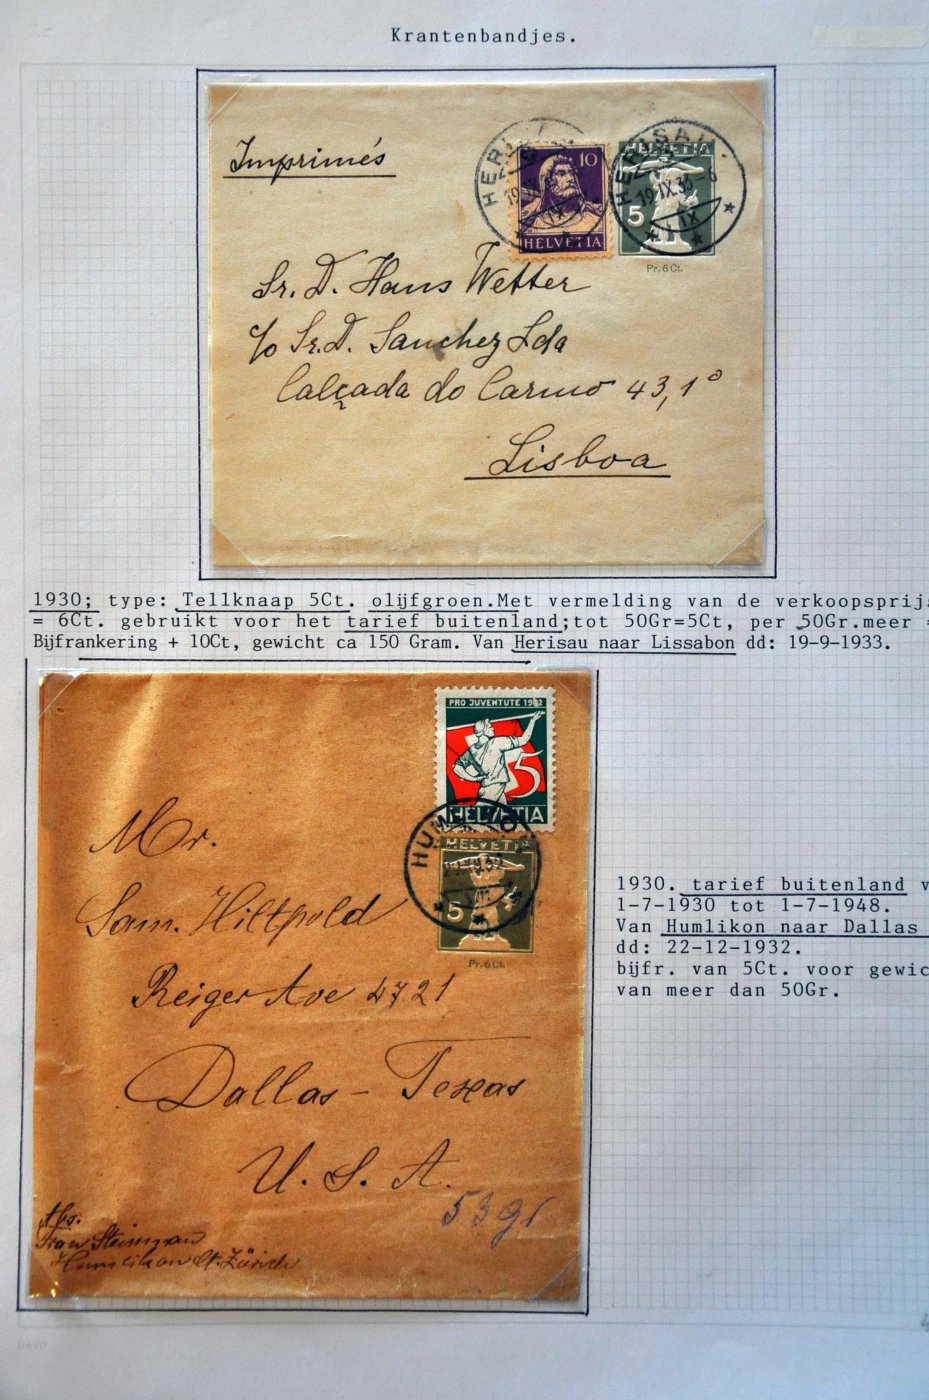 Krantenbandjes.
Imprimés
10
HELVETIA
HERISAU
19.IX.33-6
IX
HELVETIA
5
Pr. 6 Ct.
Sr. D. Hans Wetter
c/o Sr. D. Sanchez Lda
Calçada do Carmo 43,1º
Lisboa
1930; type: Tellknaap 5Ct. olijfgroen.Met vermelding van de verkoopsprijs
= 6Ct. gebruikt voor het tarief buitenland;tot 50Gr=5Ct, per 50Gr.meer =
Bijfrankering + 10Ct, gewicht ca 150 Gram. Van Herisau naar Lissabon dd: 19-9-1933.
PRO JUVENTUTE 1932
5
HELVETIA
HUMLIKON
HELVETIA
5
Pr. 6 Ct.
Mr.
Sam. Hiltpold
Reiger Ave 4721
Dallas - Texas
U. S. A.
53 gr
Abs.
Frau Steinman
Humlikon Kt. Zürich
1930. tarief buitenland v
1-7-1930 tot 1-7-1948.
Van Humlikon naar Dallas
dd: 22-12-1932.
bijfr. van 5Ct. voor gewic
van meer dan 50Gr.
DAVO